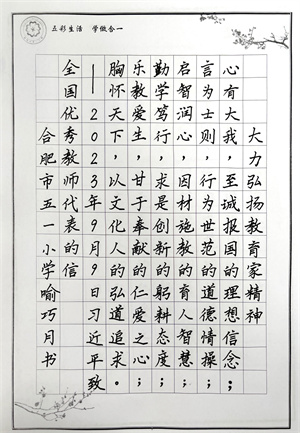 五彩生活 学做合一
大力弘扬教育家精神
心有大我，至诚报国的理想信念；
言为士则，行为世范的道德情操；
启智润心，因材施教的育人智慧；
勤学笃行，求是创新的躬耕态度；
乐教爱生，甘于奉献的仁爱之心；
胸怀天下，以文化人的弘道追求。
——2023年9月9日习近平致
全国优秀教师代表的信
合肥市五一小学喻巧月书